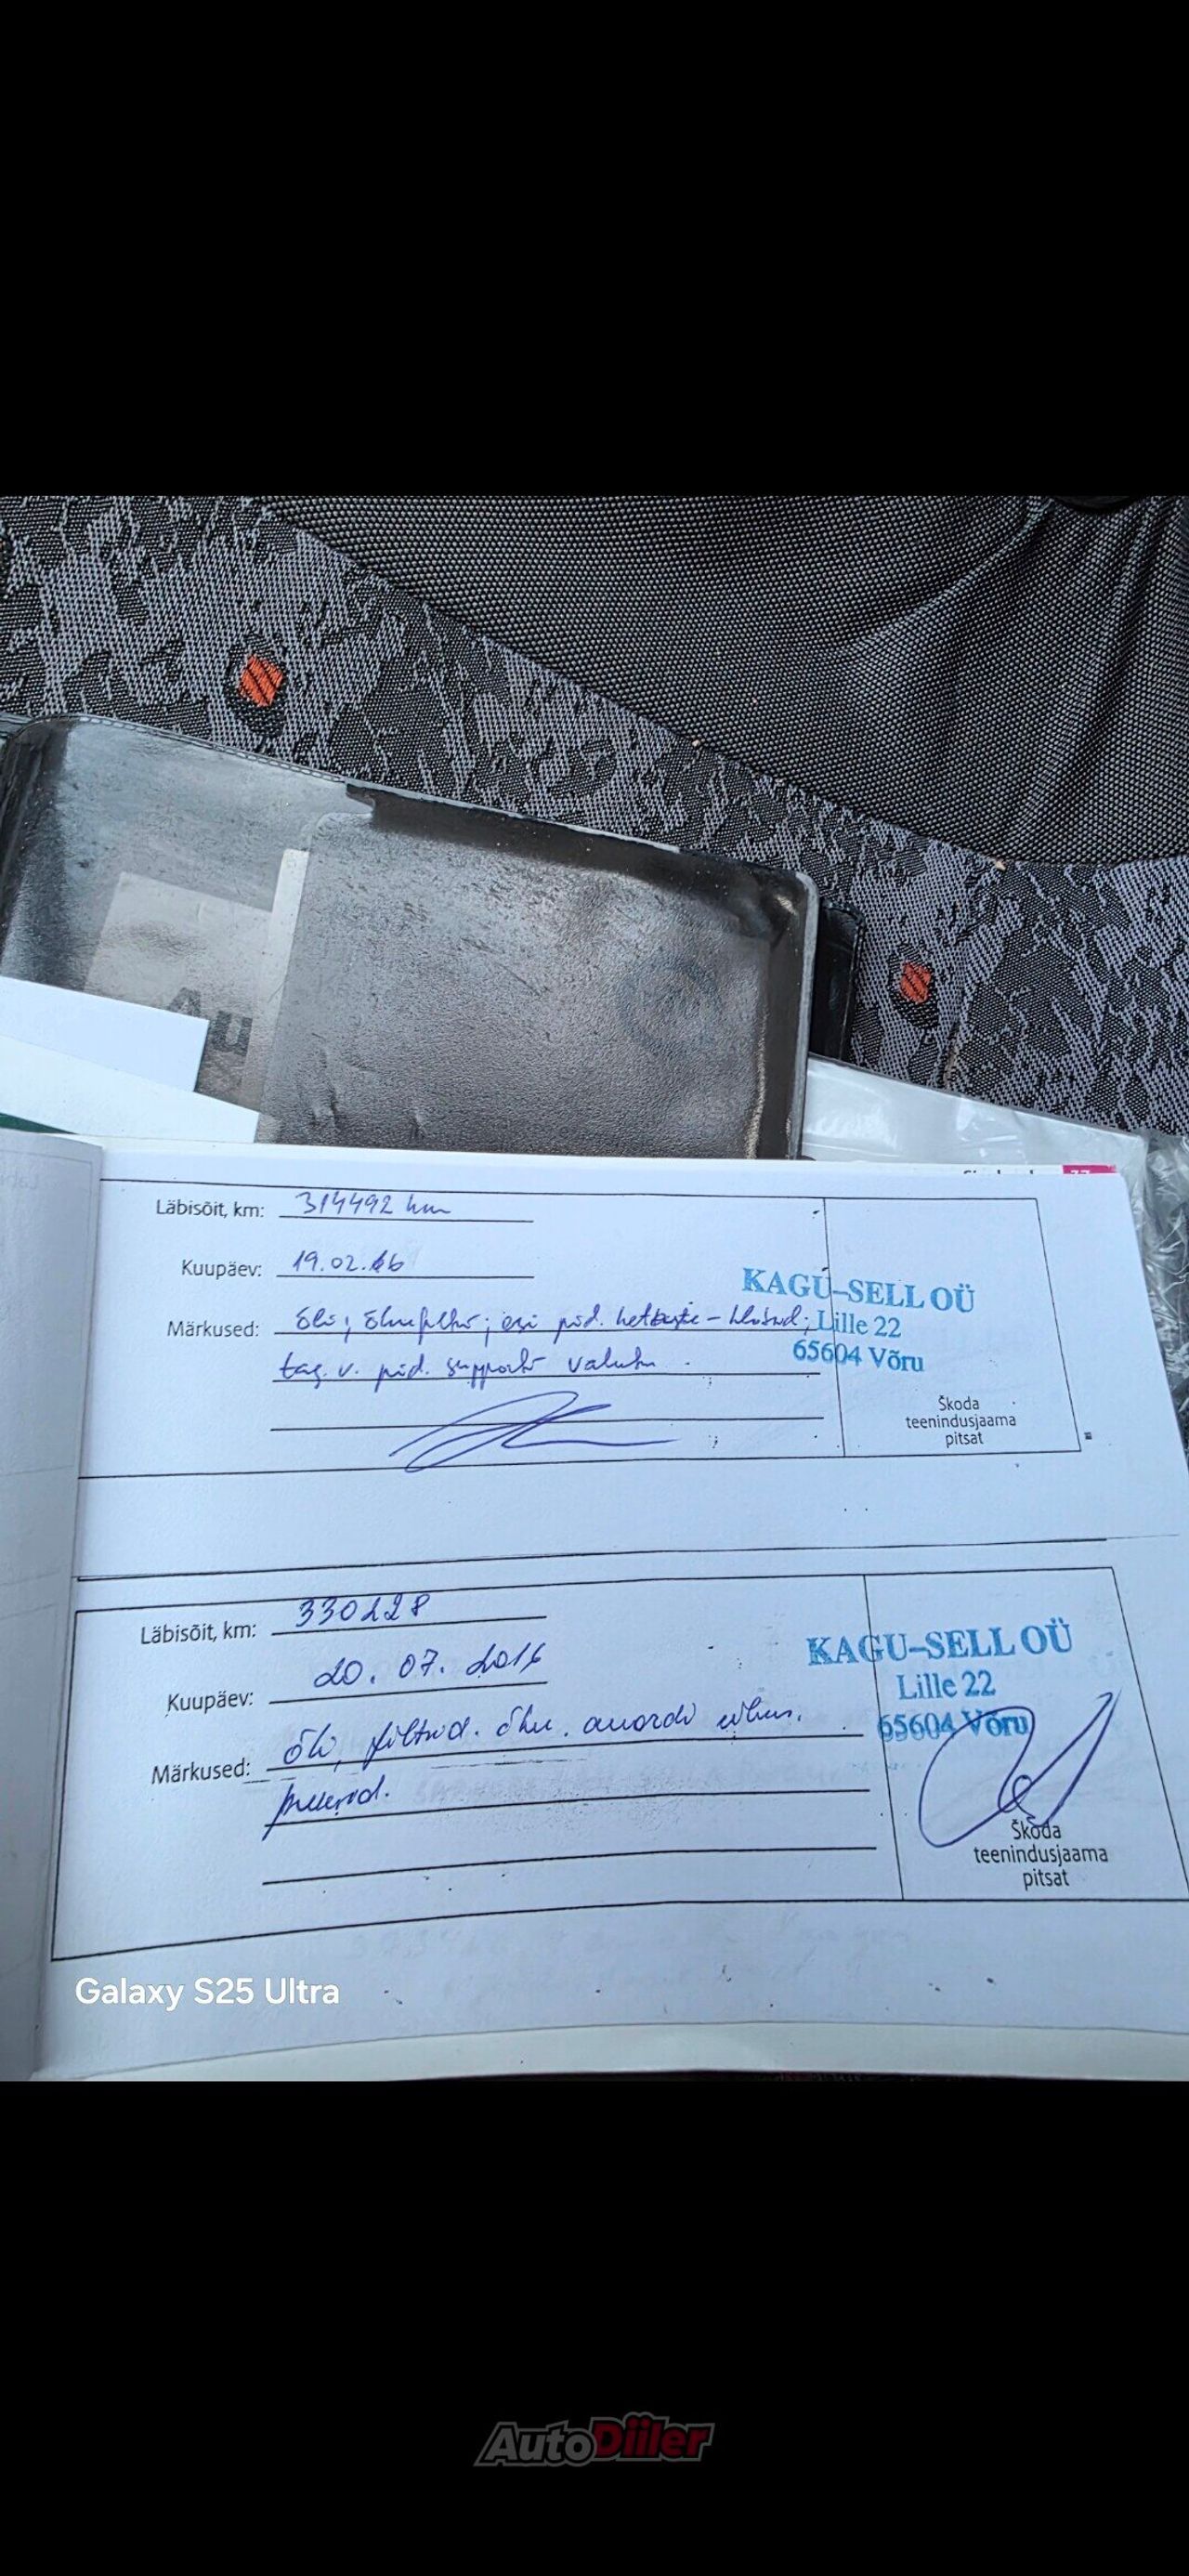 Au
77
Läbisõit, km: 314492 km
Kuupäev: 19.02.16
KAGU-SELL OÜ
Märkused: õli; õlifilter; esi pid. kettaste - klotsid;
Lille 22
65604 Võru
tag. v. pid. support vahetu
Škoda
teenindusjaama
pitsat
Läbisõit, km: 330228
Kuupäev: 20.07.2016
KAGU-SELL OÜ
Lille 22
65604 Võru
Märkused: õli, filtrid. õhu.
Škoda
teenindusjaama
pitsat
Galaxy S25 Ultra
AutoDiiler